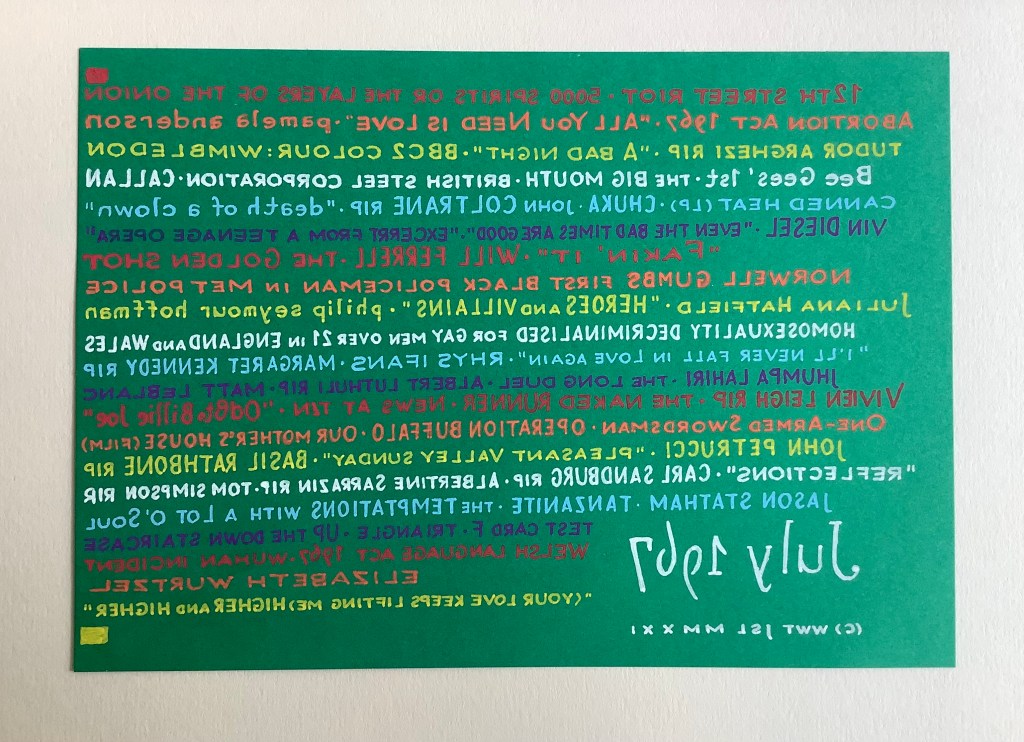 12TH STREET RIOT · 5000 SPIRITS OR THE LAYERS OF THE ONION
ABORTION ACT 1967 · "ALL YOU NEED IS LOVE" · pamela anderson
TUDOR ARGHEZI RIP · "A BAD NIGHT" · BBC2 COLOUR: WIMBLEDON
BEE GEES' 1st · THE BIG MOUTH · BRITISH STEEL CORPORATION · CALLAN
CANNED HEAT (LP) · CHUKA · JOHN COLTRANE RIP · "death of a clown"
VIN DIESEL · "EVEN THE BAD TIMES ARE GOOD" · "EXCERPT FROM A TEENAGE OPERA"
"FAKIN' IT" · WILL FERRELL · THE GOLDEN SHOT
NORWELL GUMBS FIRST BLACK POLICEMAN IN MET POLICE
JULIANA HATFIELD · "HEROES AND VILLAINS" · philip seymour hoffman
HOMOSEXUALITY DECRIMINALISED FOR GAY MEN OVER 21 IN ENGLAND AND WALES
"I'LL NEVER FALL IN LOVE AGAIN" · RHYS IFANS · MARGARET KENNEDY RIP
JHUMPA LAHIRI · THE LONG DUEL · ALBERT LUTHULI RIP · MATT LEBLANC
VIVIEN LEIGH RIP · THE NAKED RUNNER · NEWS AT TEN · "Ode to Billie Joe"
ONE-ARMED SWORDSMAN · OPERATION BUFFALO · OUR MOTHER'S HOUSE (FILM)
JOHN PETRUCCI · "PLEASANT VALLEY SUNDAY" · BASIL RATHBONE RIP
"REFLECTIONS" · CARL SANDBURG RIP · ALBERTINE SARRAZIN RIP · TOM SIMPSON RIP
JASON STATHAM · TANZANITE · THE TEMPTATIONS WITH A LOT O' SOUL
TEST CARD F · TRIANGLE · UP THE DOWN STAIRCASE
WELSH LANGUAGE ACT 1967 · WUHAN INCIDENT
ELIZABETH WURTZEL
"(YOUR LOVE KEEPS LIFTING ME) HIGHER AND HIGHER"
July 1967
(C) WWT JSL MMXXI